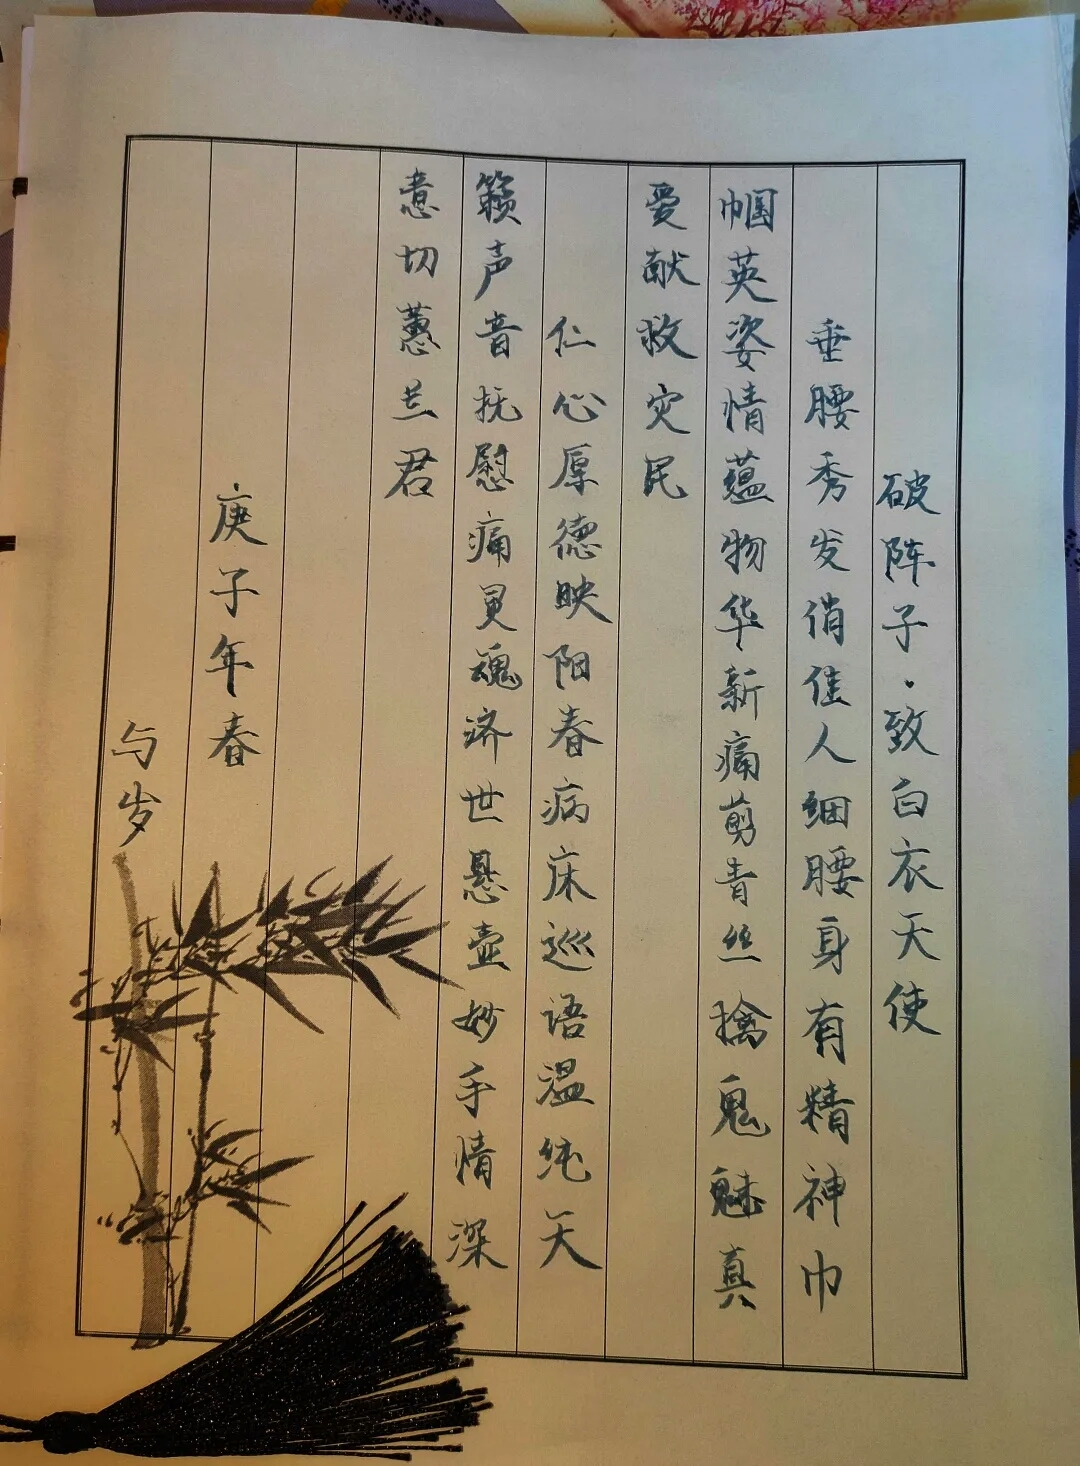 破阵子·致白衣天使
垂腰秀发俏佳人细腰身有精神巾
帼英姿情蕴物华新痛剪青丝擒鬼魅真
爱献救灾民
仁心厚德映阳春病床巡语温纯天
籁声音抚慰痛灵魂济世悬壶妙手情深
意切蕙兰君
庚子年春
与岁